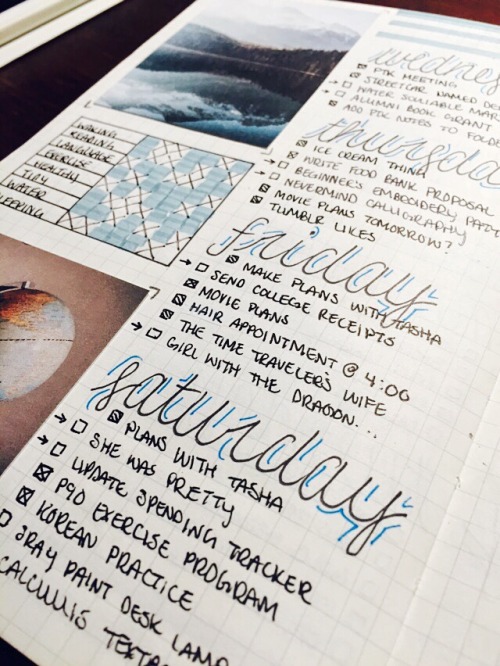 WAKING
READING
LANGUAGE
EXERCISE
HEALTHY
TIDY
WATER
LEEPING
wednes
PTK MEETING
STREETCAR NAMED DE
WATER SOLUABLE MAR
ALUMNI BOOK GRANT
ADD PTK NOTES TO FOLDE
thursda
ICE CREAM THING
WRITE FOOD BANK PROPOSAL
BEGINNER'S EMBROIDERY PATT
NEVERMIND CALLIGRAPHY
MOVIE PLANS TOMORROW?
TUMBLR LIKES
friday
MAKE PLANS WITH TASHA
SEND COLLEGE RECEIPTS
MOVIE PLANS
HAIR APPOINTMENT @ 4:00
THE TIME TRAVELER'S WIFE
GIRL WITH THE DRAGON...
saturday
PLANS WITH TASHA
SHE WAS PRETTY
UPDATE SPENDING TRACKER
P90 EXERCISE PROGRAM
KOREAN PRACTICE
PAINT DESK LAMP
CALCULUS